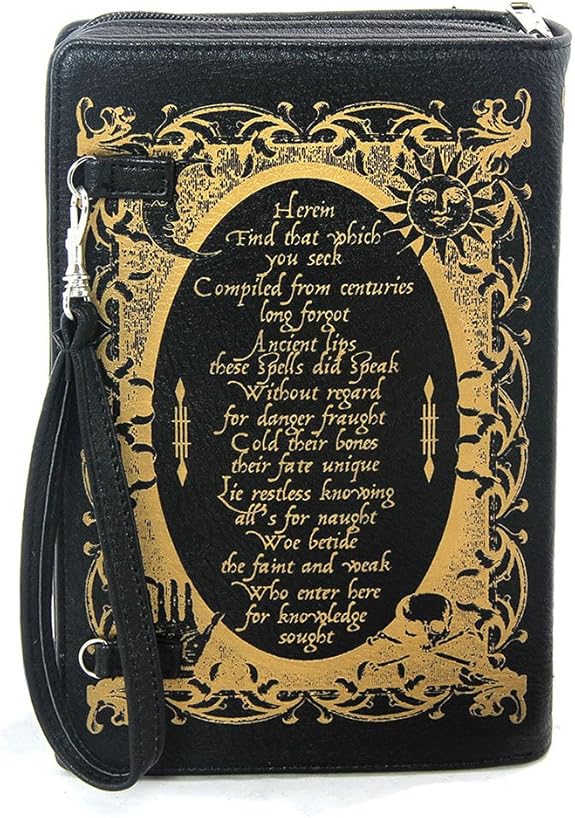 Herein
Find that which
you seek
Compiled from centuries
long forgot
Ancient lips
these spells did speak
Without regard
for danger fraught
Cold their bones
their fate unique
Lie restless knowing
all's for naught
Woe betide
the faint and weak
Who enter here
for knowledge
sought